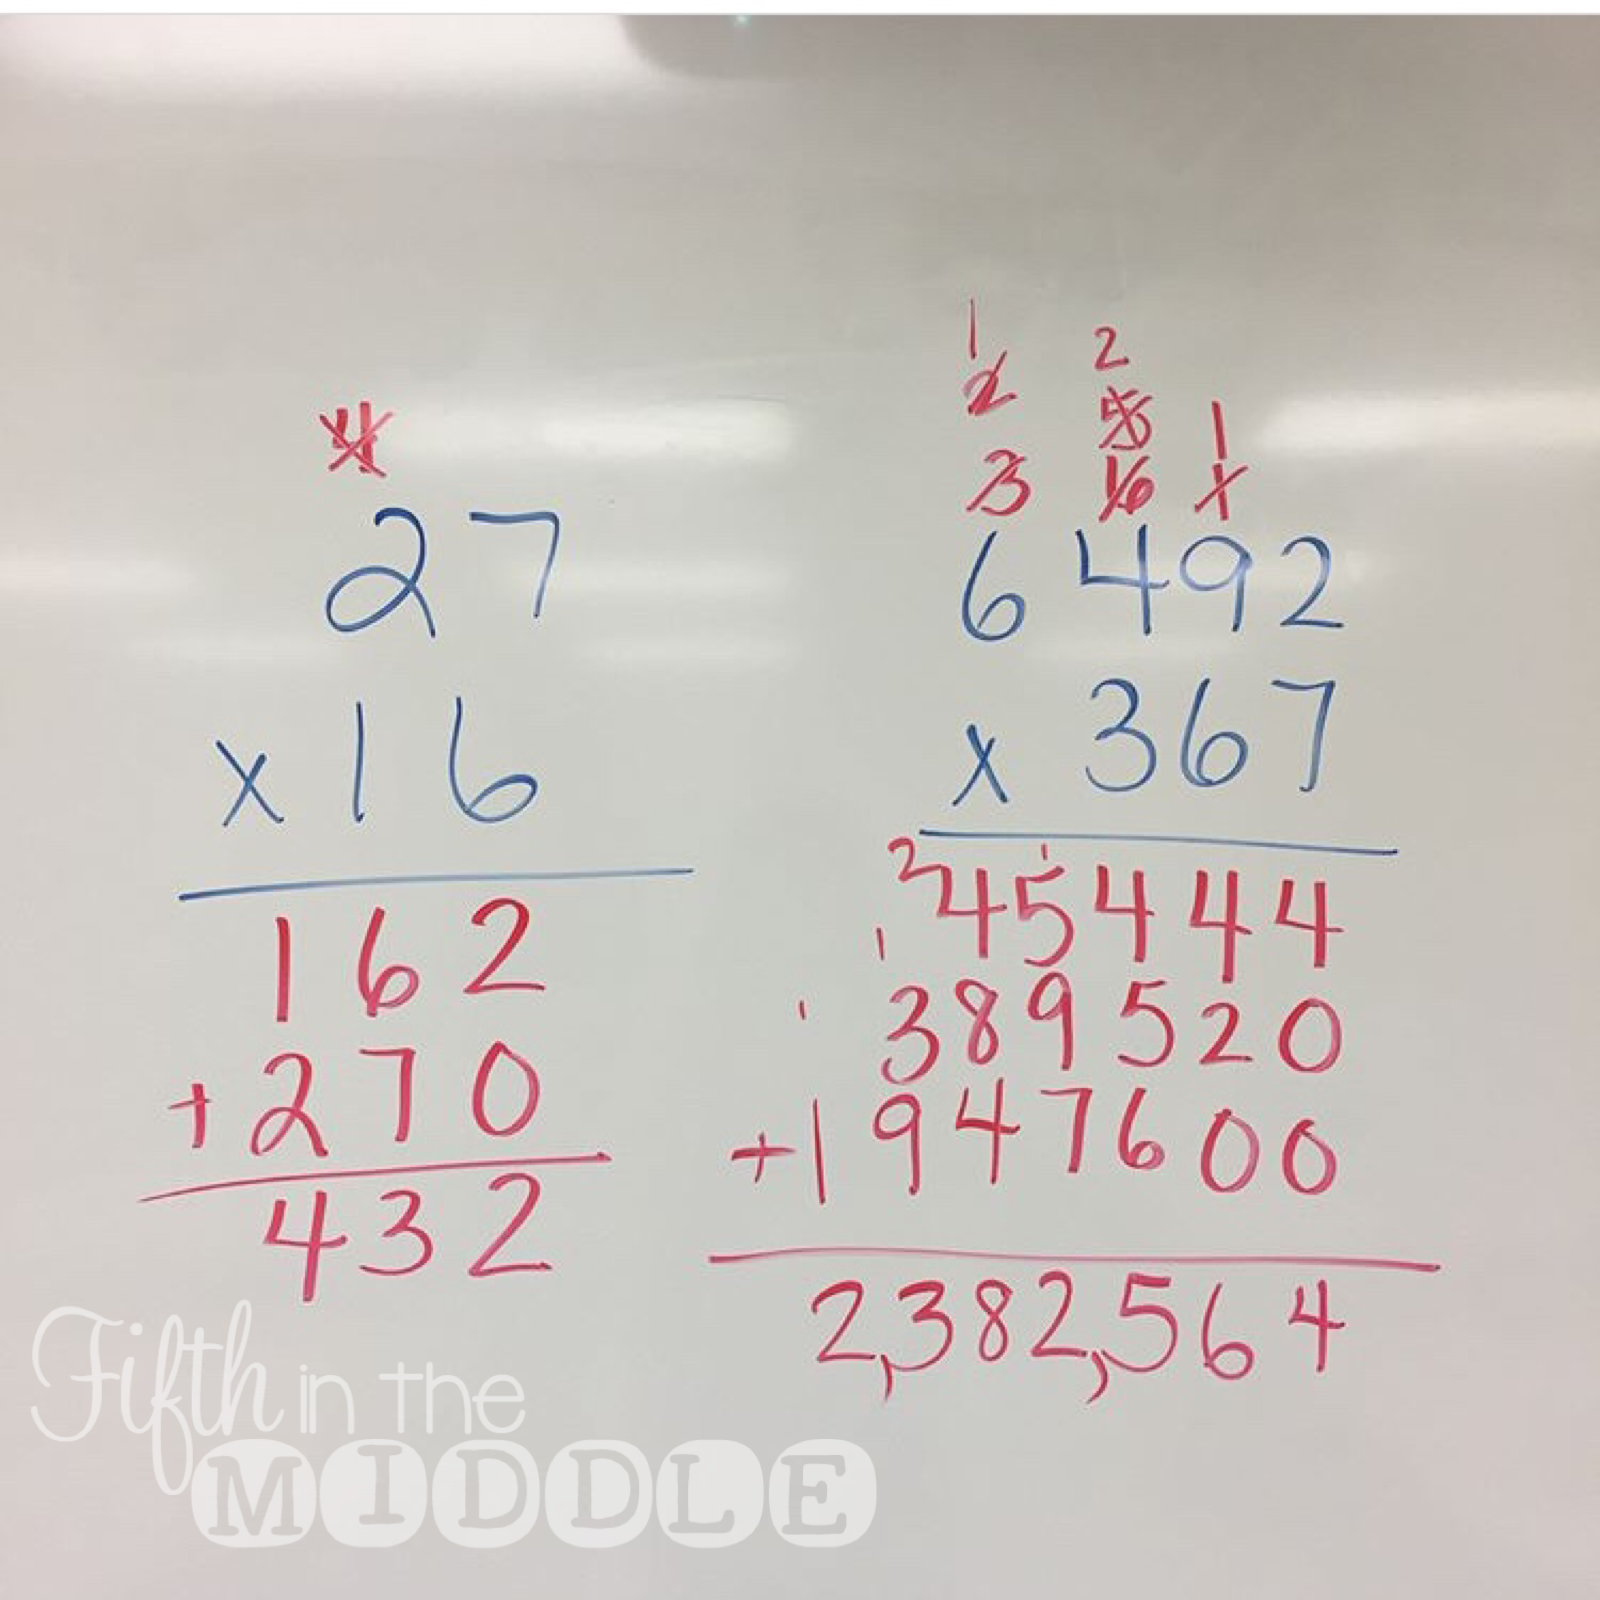 4
27
x 16
162
+ 270
432
1 2
2 5
3 16 1
1
6492
x 367
2 1
45444
1
389520
1
+1947600
2,382,564
Fifth in the
MIDDLE